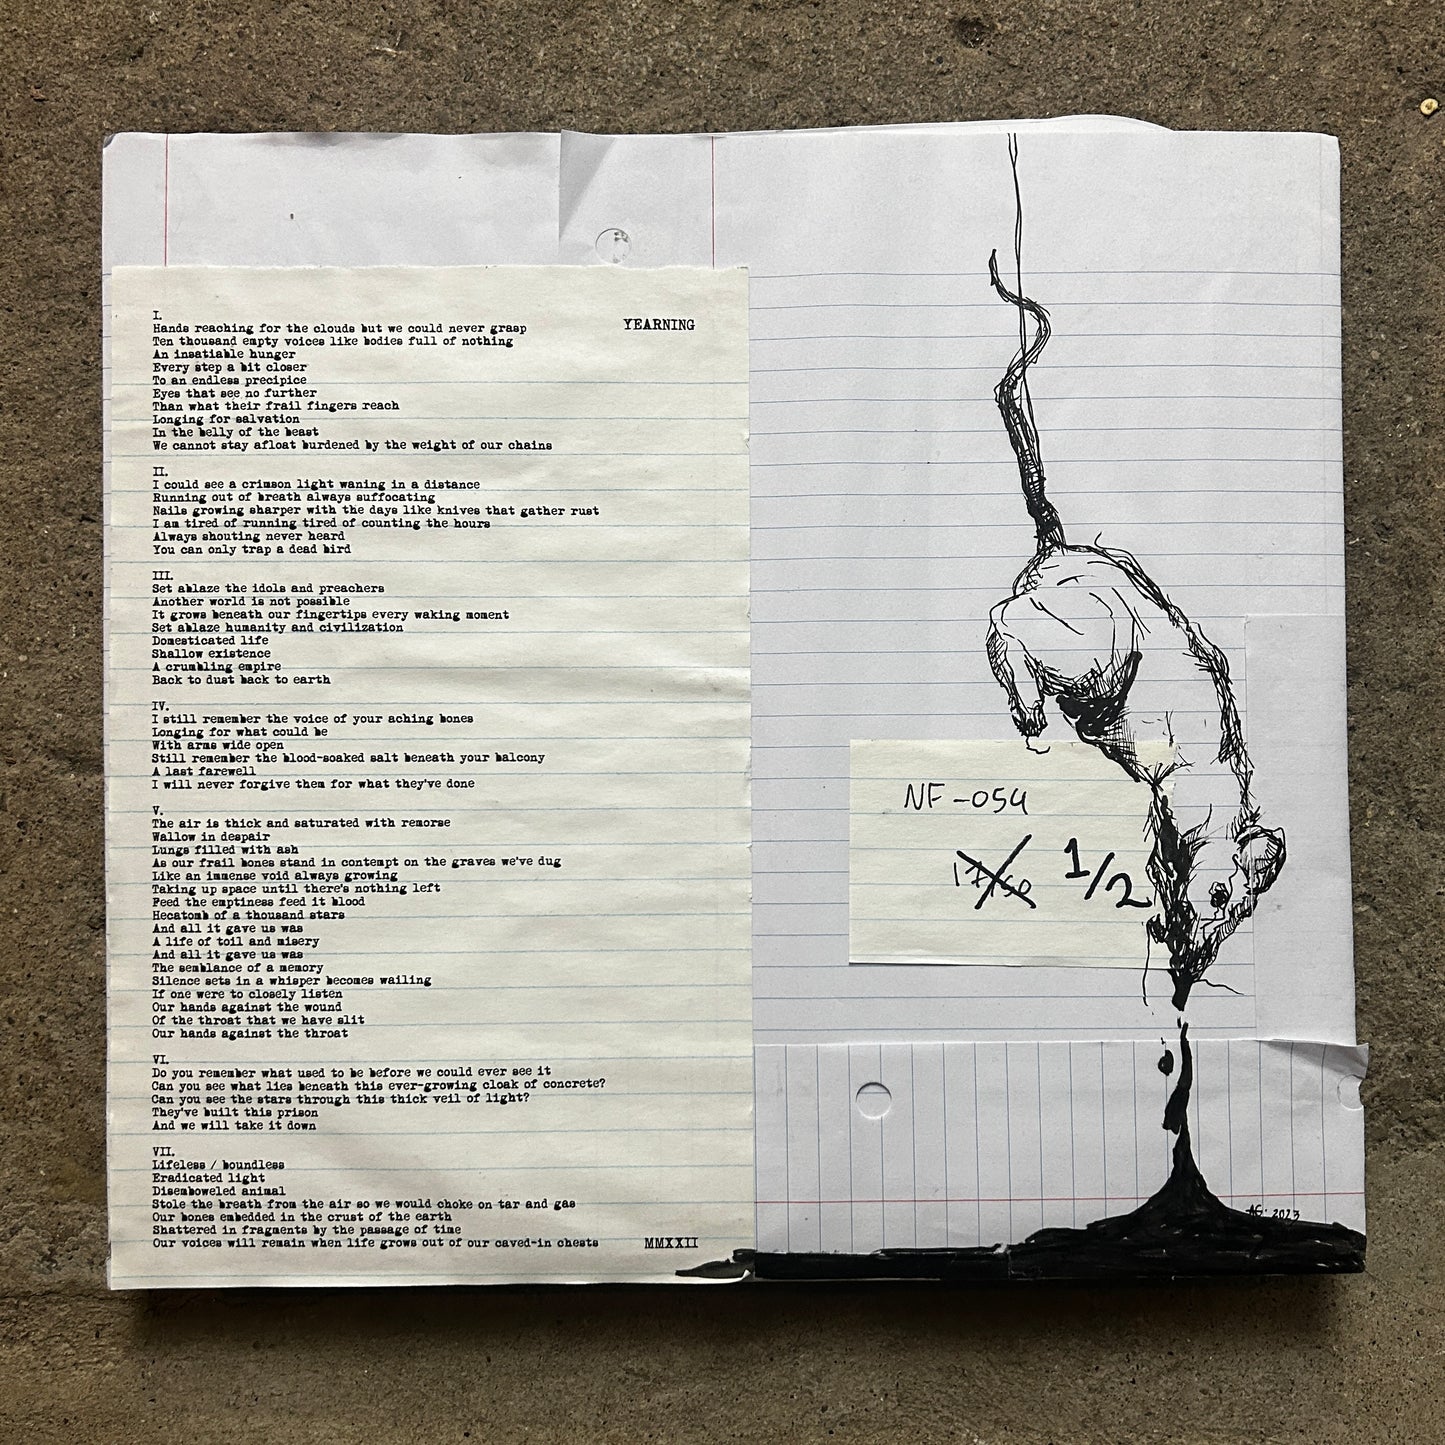 YEARNING
I.
Hands reaching for the clouds but we could never grasp
Ten thousand empty voices like bodies full of nothing
An insatiable hunger
Every step a bit closer
To an endless precipice
Eyes that see no further
Than what their frail fingers reach
Longing for salvation
In the belly of the beast
We cannot stay afloat burdened by the weight of our chains
II.
I could see a crimson light waning in a distance
Running out of breath always suffocating
Nails growing sharper with the days like knives that gather rust
I am tired of running tired of counting the hours
Always shouting never heard
You can only trap a dead bird
III.
Set ablaze the idols and preachers
Another world is not possible
It grows beneath our fingertips every waking moment
Set ablaze humanity and civilization
Domesticated life
Shallow existence
A crumbling empire
Back to dust back to earth
IV.
I still remember the voice of your aching bones
Longing for what could be
With arms wide open
Still remember the blood-soaked salt beneath your balcony
A last farewell
I will never forgive them for what they've done
V.
The air is thick and saturated with remorse
Wallow in despair
Lungs filled with ash
As our frail bones stand in contempt on the graves we've dug
Like an immense void always growing
Taking up space until there's nothing left
Feed the emptiness feed it blood
Hecatomb of a thousand stars
And all it gave us was
A life of toil and misery
And all it gave us was
The semblance of a memory
Silence sets in a whisper becomes wailing
If one were to closely listen
Our hands against the wound
Of the throat that we have slit
Our hands against the throat
VI.
Do you remember what used to be before we could ever see it
Can you see what lies beneath this ever-growing cloak of concrete?
Can you see the stars through this thick veil of light?
They've built this prison
And we will take it down
VII.
Lifeless / boundless
Eradicated light
Disemboweled animal
Stole the breath from the air so we would choke on tar and gas
Our bones embedded in the crust of the earth
Shattered in fragments by the passage of time
Our voices will remain when life grows out of our caved-in chests
MMXXII
NF-054
1/2
AG. 2023